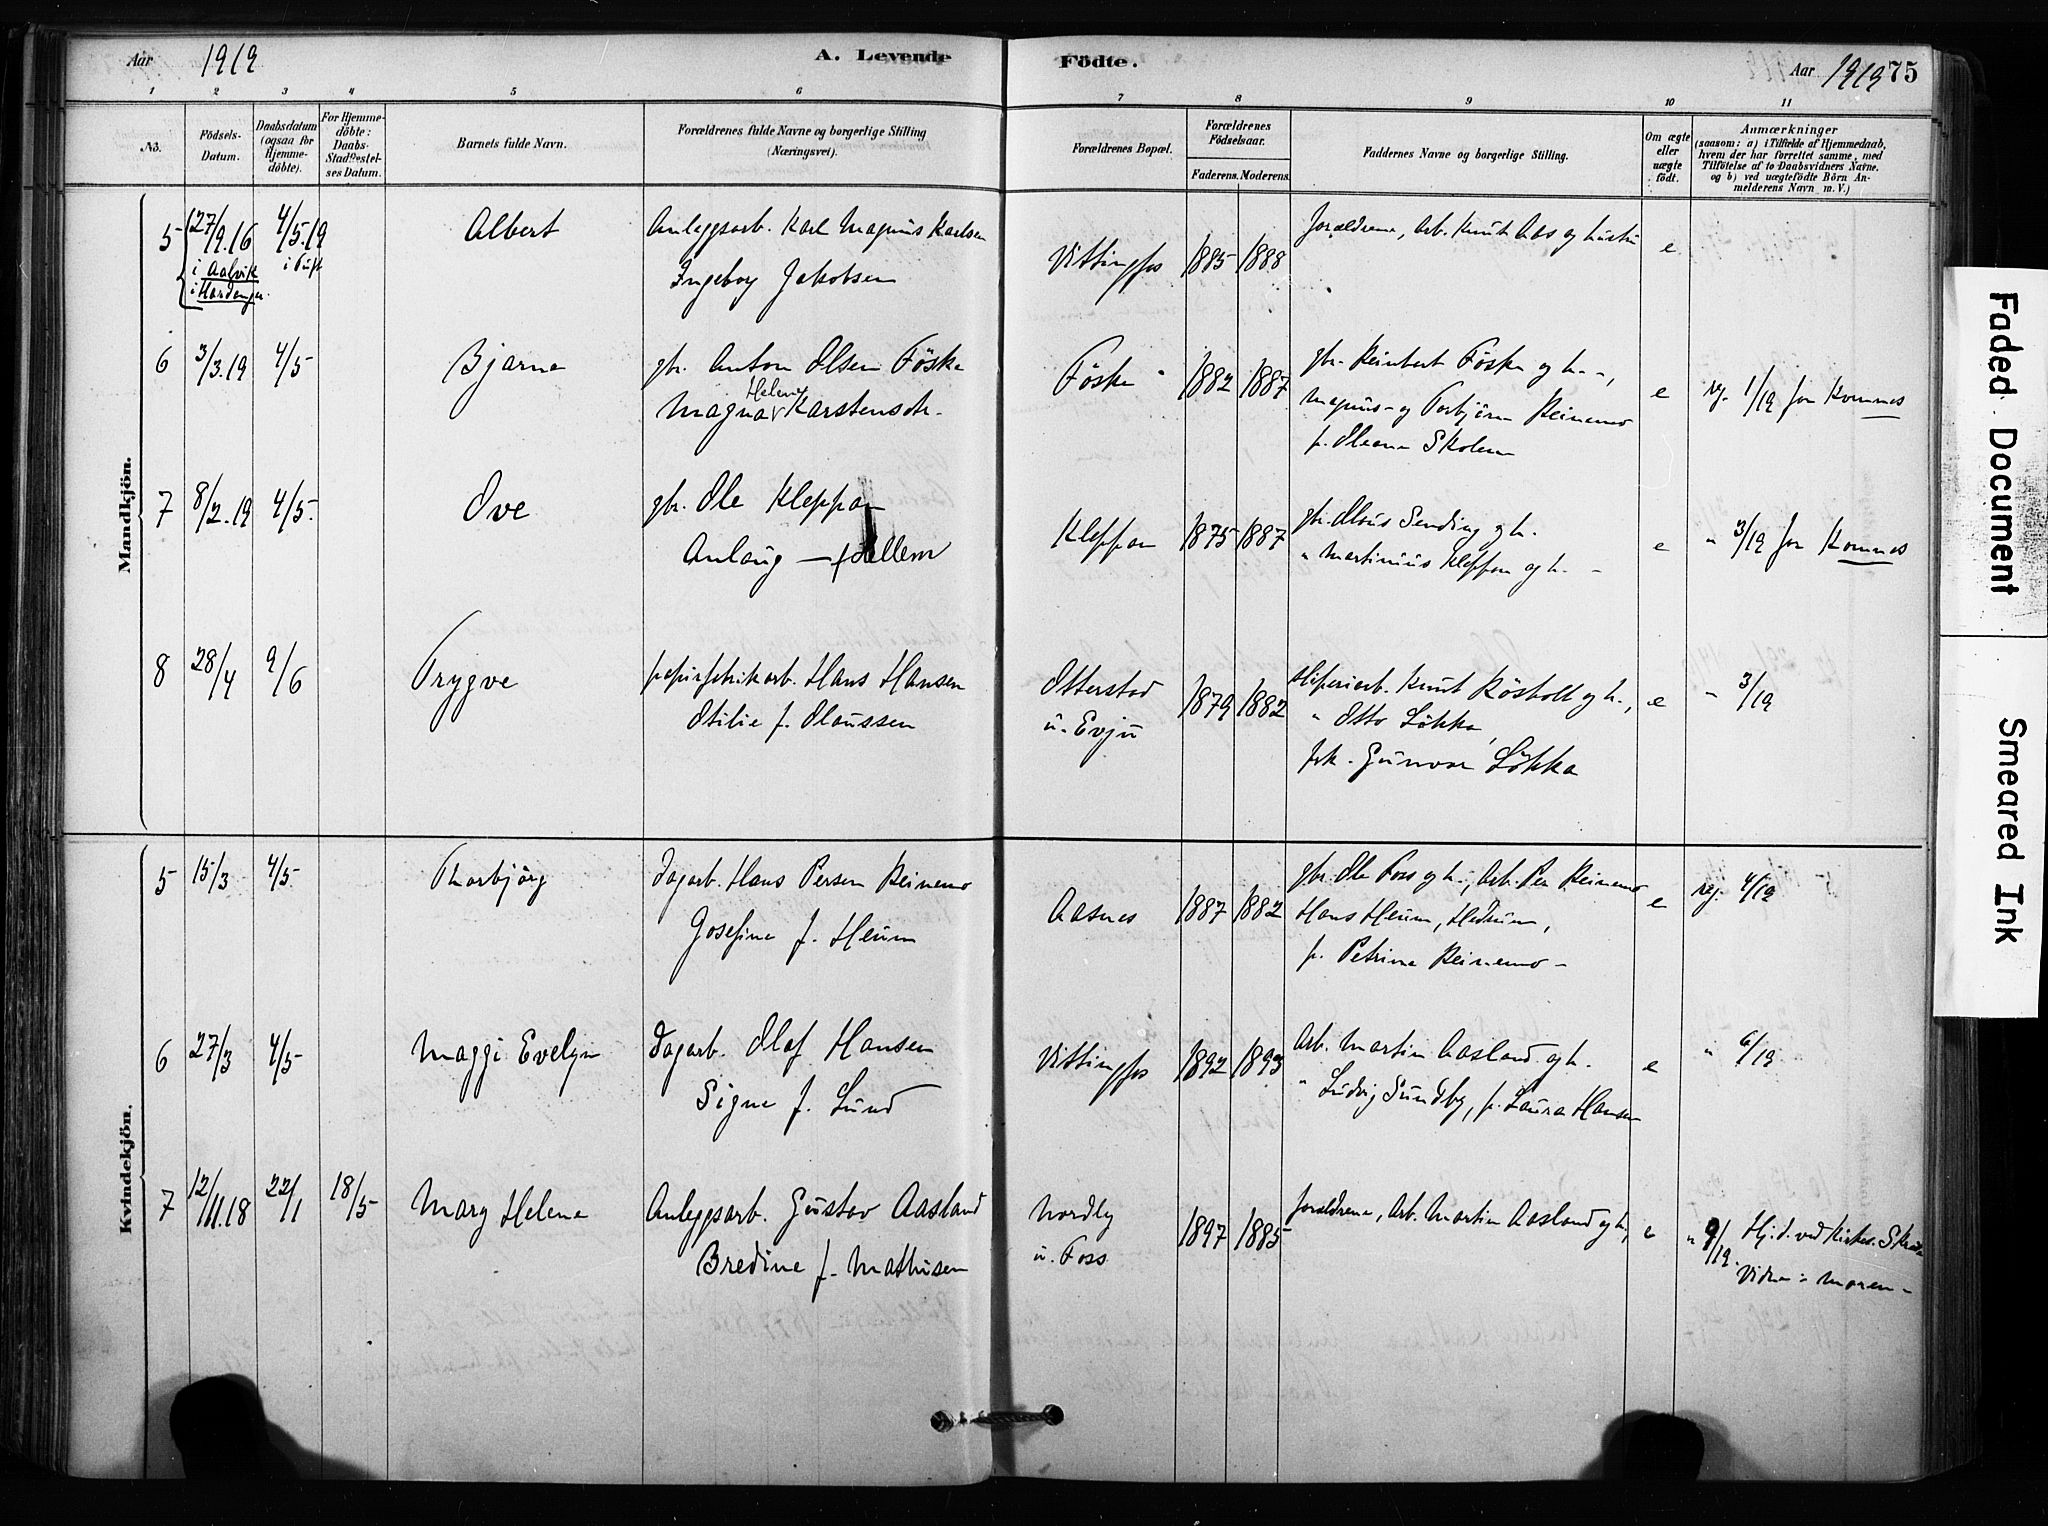 Aar 1919 A. Levende Födte. Aar 1919 75
1 2 3 4 5 6 7 8 9 10 11
No. Födsels-Datum. Daabsdatum (ogsaa for Hjemmedöbte). For Hjemmedöbte: Daabs-Stadfestelses Datum. Barnets fulde Navn. Forældrenes fulde Navne og borgerlige Stilling (Næringsvei). Forældrenes Bopæl. Forældrenes Födselsaar. Faderens. Moderens. Faddernes Navne og borgerlige Stilling. Om ægte eller uægte födt. Anmærkninger (saasom: a) i Tilfælde af Hjemmedaab, hvem der har forrettet samme, med Tilföielse af to Daabsvidners Navne, og b) ved uægtefödte Börn Anmelderens Navn m. V.)
Mandkjön.
5 27/9.16 4/5.19 Albert Anleggsarb. Karl Magnus Karlsen Vittingfos 1885 1888 forældrene, Arb. Knut Aas og hustru e
i Aalvik i Tuft
i Hardanger. Ingeborg Jakobsen
6 3/3.19 4/5 Bjarne gbr. Anton Olsen Föske Föske 1882 1887 gbr. Reinbert Föske og h.-, e rg. 1/19 for Komnes
Magna Helene Karstensdtr. Magnus- og Torbjörn Reinemo
p. Oleane Skolem
7 8/2.19 4/5. Ove gbr. Ole Kleppan Kleppan 1875 1887 gbr. Olous Sending og h. e " 3/19 for Komnes
Anlaug — f. Hellem " Martinius Kleppan og h. -
8 28/4 9/6 Trygve papirfabrikarb. Hans Hansen Otterstad 1879 1882 sliperiarb. Knut Røsholt og h., e " 3/19
Otilie f. Olaussen u. Evju " Otto Løkka,
frk. Gunvor Løkka
Kvindekjön.
5 15/3 4/5 Thorbjörg Dagarb. Hans Persen Reinemo Aasnes 1887 1882 gbr. Ole Foss og h., Arb. Per Reinemo e rg. 4/19
Josefine f. Heum Hans Heum, Hedrum,
p. Petrine Reinemo -
6 27/3 4/5 Maggi Evelyn Dagarb. Olaf Hansen Vittingfos 1892 1893 Arb. Martin Aasland og h. e " 6/19
Signe f. Lund " Ludvig Sundby, p. Laura Hansen
7 12/11.18 22/1 18/5 Mary Helene Anleggsarb. Gustav Aasland Nordby 1897 1885 forældrene, Arb. Martin Aasland og h, e " 9/19. Hj.d. ved Kirkes.
Bredine f. Mathisen u. Foss Vidne: Moren -
Faded Document
Smeared Ink